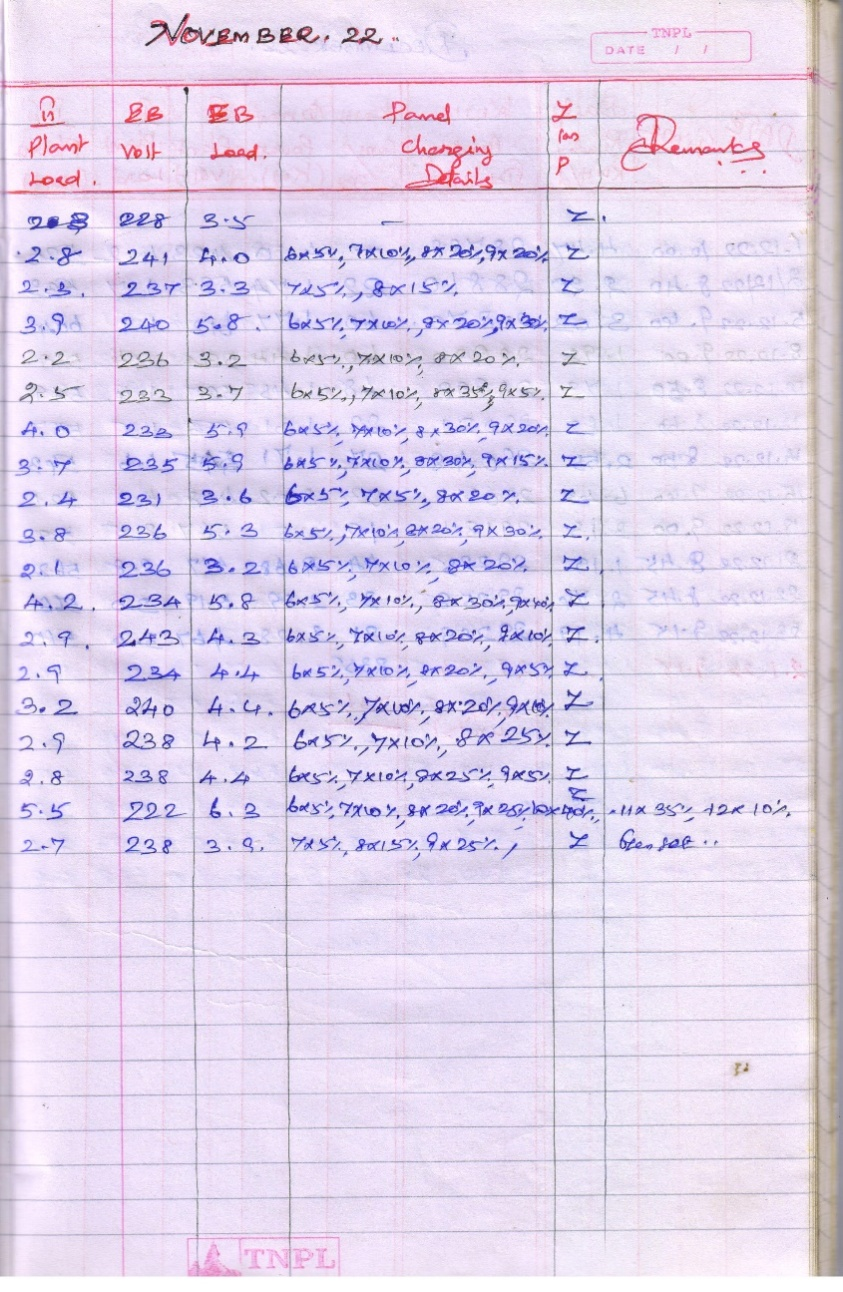 NOVEMBER. 22..
TNPL
DATE / /
Plant Load. EB Volt EB Load. Panel Charging Details Z (or) P Remarks
228 3.5 — Z.
2.8 241 4.0 6x5%, 7x10%, 8x20%, 9x20% Z
2.3. 237 3.3 7x5%, 8x15%. Z
3.9 240 5.8. 6x5%, 7x10%, 8x20%, 9x30% Z
2.2 236 3.2 6x5%, 7x10%, 8x20%. Z
2.5 233 3.7 6x5%, 7x10%, 8x35%, 9x5% Z
4.0 233 5.9 6x5%, 7x10%, 8x30%, 9x20% Z
3.7 235 5.9 6x5%, 7x10%, 8x30%, 9x15% Z
2.4 231 3.6 6x5%, 7x5%, 8x20%. Z
3.8 236 5.3 6x5%, 7x10%, 8x20%, 9x30%. Z.
2.1 236 3.2 6x5%, 7x10%, 8x20% Z.
4.2. 234 5.8 6x5%, 7x10%, 8x30%, Z
2.9. 243 4.3 6x5%, 7x10%, 8x20%, 9x10% Z.
2.9 234 4.4 6x5%, 7x10%, 8x20%, 9x5% Z
3.2 240 4.4. 6x5%, 7x10%, 8x20%, 9x10% Z
2.9 238 4.2 6x5%, 7x10%, 8x25% Z
2.8 238 4.4 6x5%, 7x10%, 8x25%, 9x5% Z
5.5 222 6.3 6x5%, 7x10%, 8x20%, 9x25%, Z 11x35%, 12x10%.
2.7 238 3.9. 7x5%, 8x15%, 9x25%, Z Genset..
TNPL